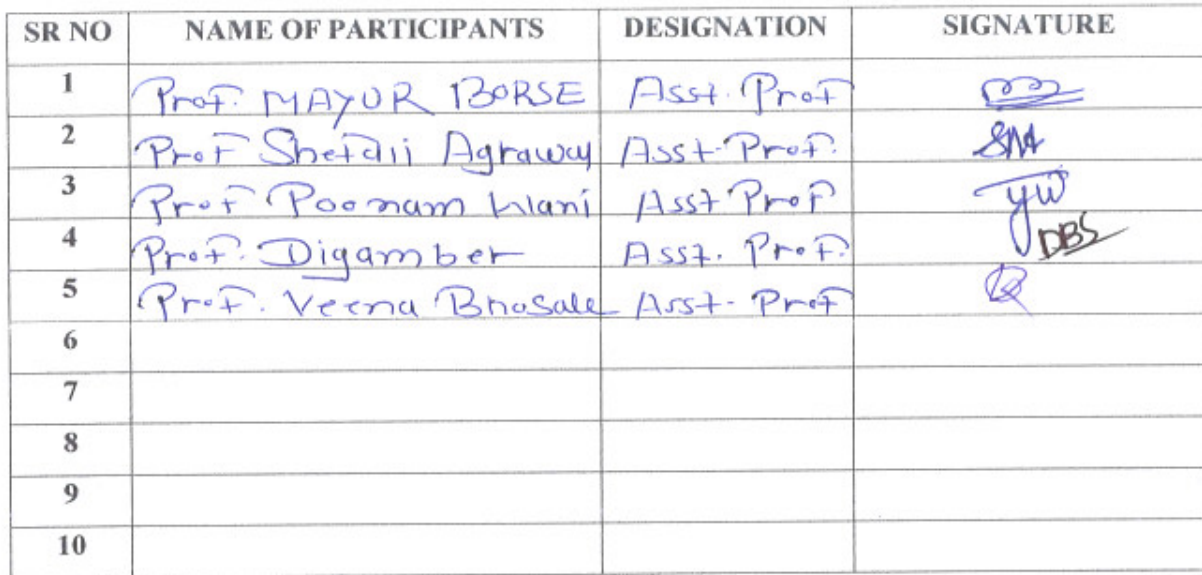 SR NO NAME OF PARTICIPANTS DESIGNATION SIGNATURE
1 Prof. MAYUR BORSE Asst. Prof
2 Prof Agraway Asst. Prof. SNA
3 Prof Poonam Asst Prof
4 Prof. Digamber Asst. Prof. DBS
5 Prof. Veena Bhosale Asst. Prof
6
7
8
9
10